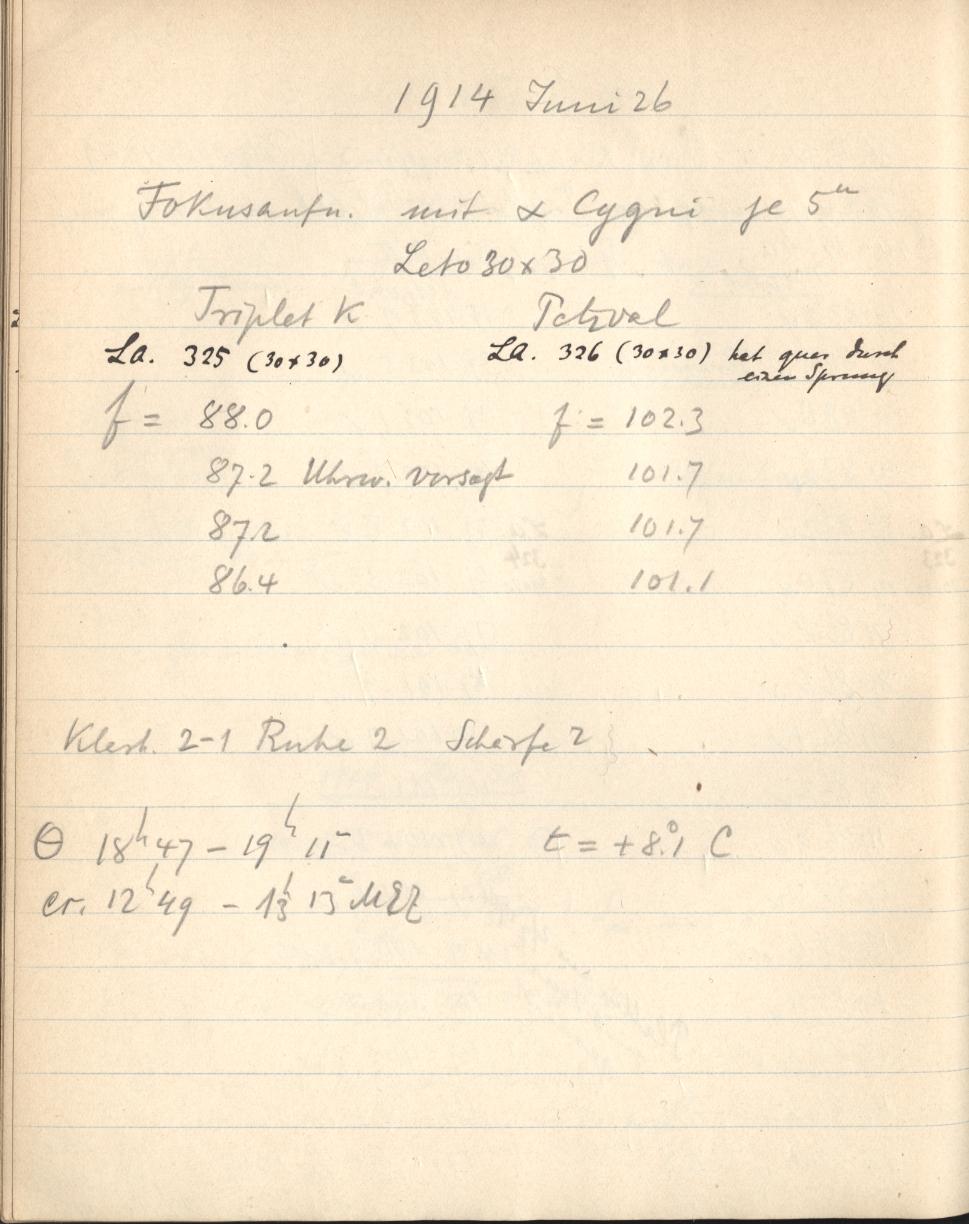 1914 Juni 26
Fokusaufn. mit α Cygni je 5ᵐ
Leto 30x30
Triplet K Petzval
La. 325 (30x30) La. 326 (30x30) hat quer durch
einen Sprung
f = 88.0 f = 102.3
87.2 Uhrw. versagt 101.7
87.2 101.7
86.4 101.1
2-1 Ruhe 2 Schärfe 2
Θ 18ʰ47 – 19ʰ 11ᵐ t = +8°.1 C
12ʰ49 – 13ʰ 13ᵐ MEZ